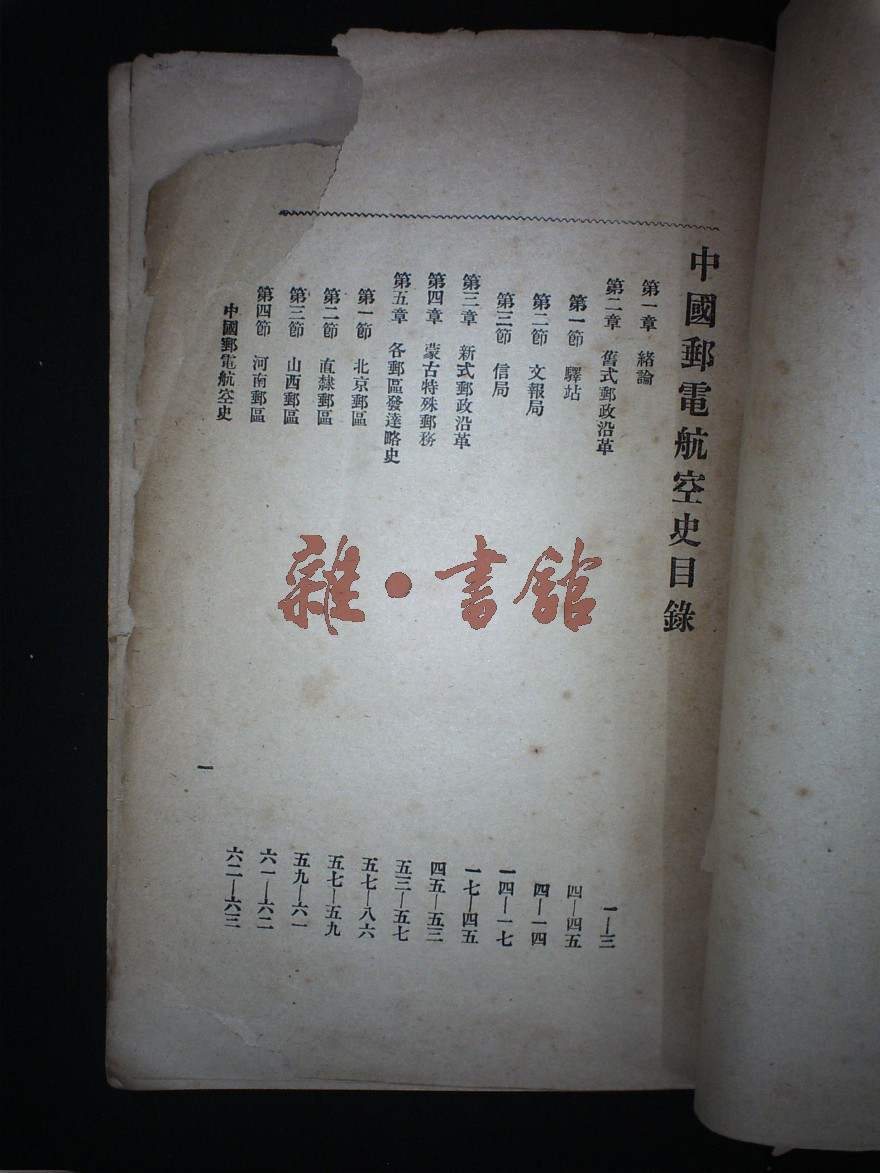 中國郵電航空史目錄
第一章 緒論 一—三
第二章 舊式郵政沿革 四—四五
第一節 驛站 四—一四
第二節 文報局 一四—一七
第三節 信局 一七—四五
第三章 新式郵政沿革 四五—五三
第四章 蒙古特殊郵務 五三—五七
第五章 各郵區發達略史 五七—八六
第一節 北京郵區 五七—五九
第二節 直隸郵區 五九—六一
第三節 山西郵區 六一—六二
第四節 河南郵區 六二—六三
中國郵電航空史 一
雜·書館